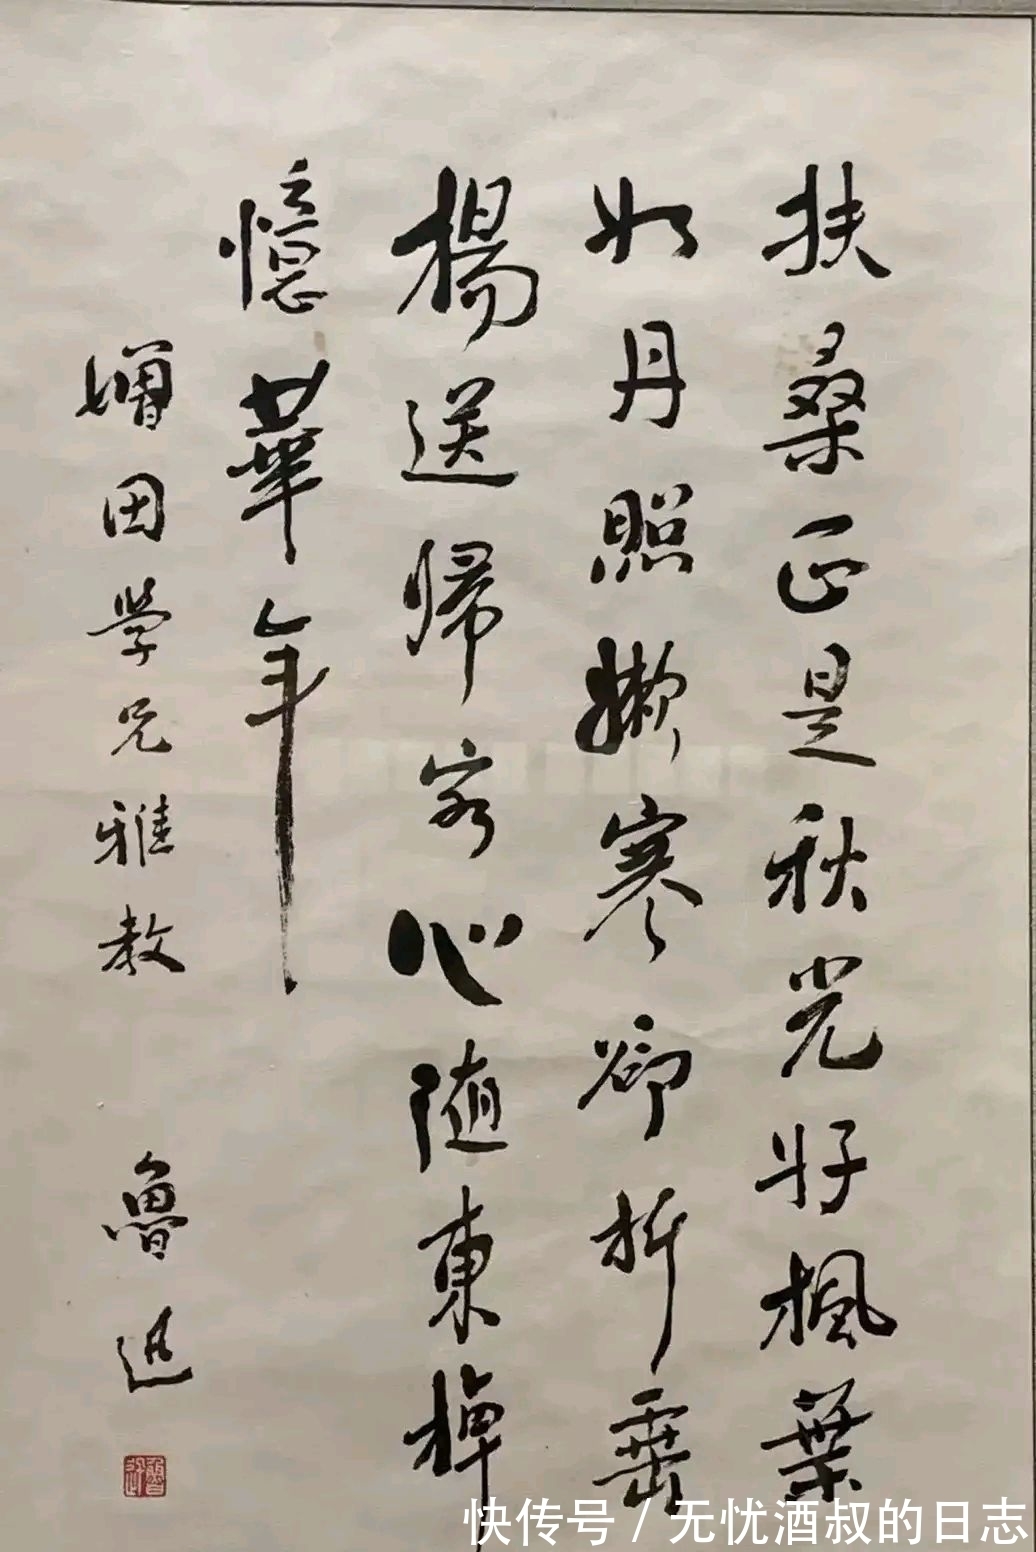 扶桑正是秋光好楓葉
如丹照嫩寒卻折垂
楊送歸客心隨東棹
憶華年
增田學兄雅教
魯迅
魯迅
快传号/无忧酒叔的日志